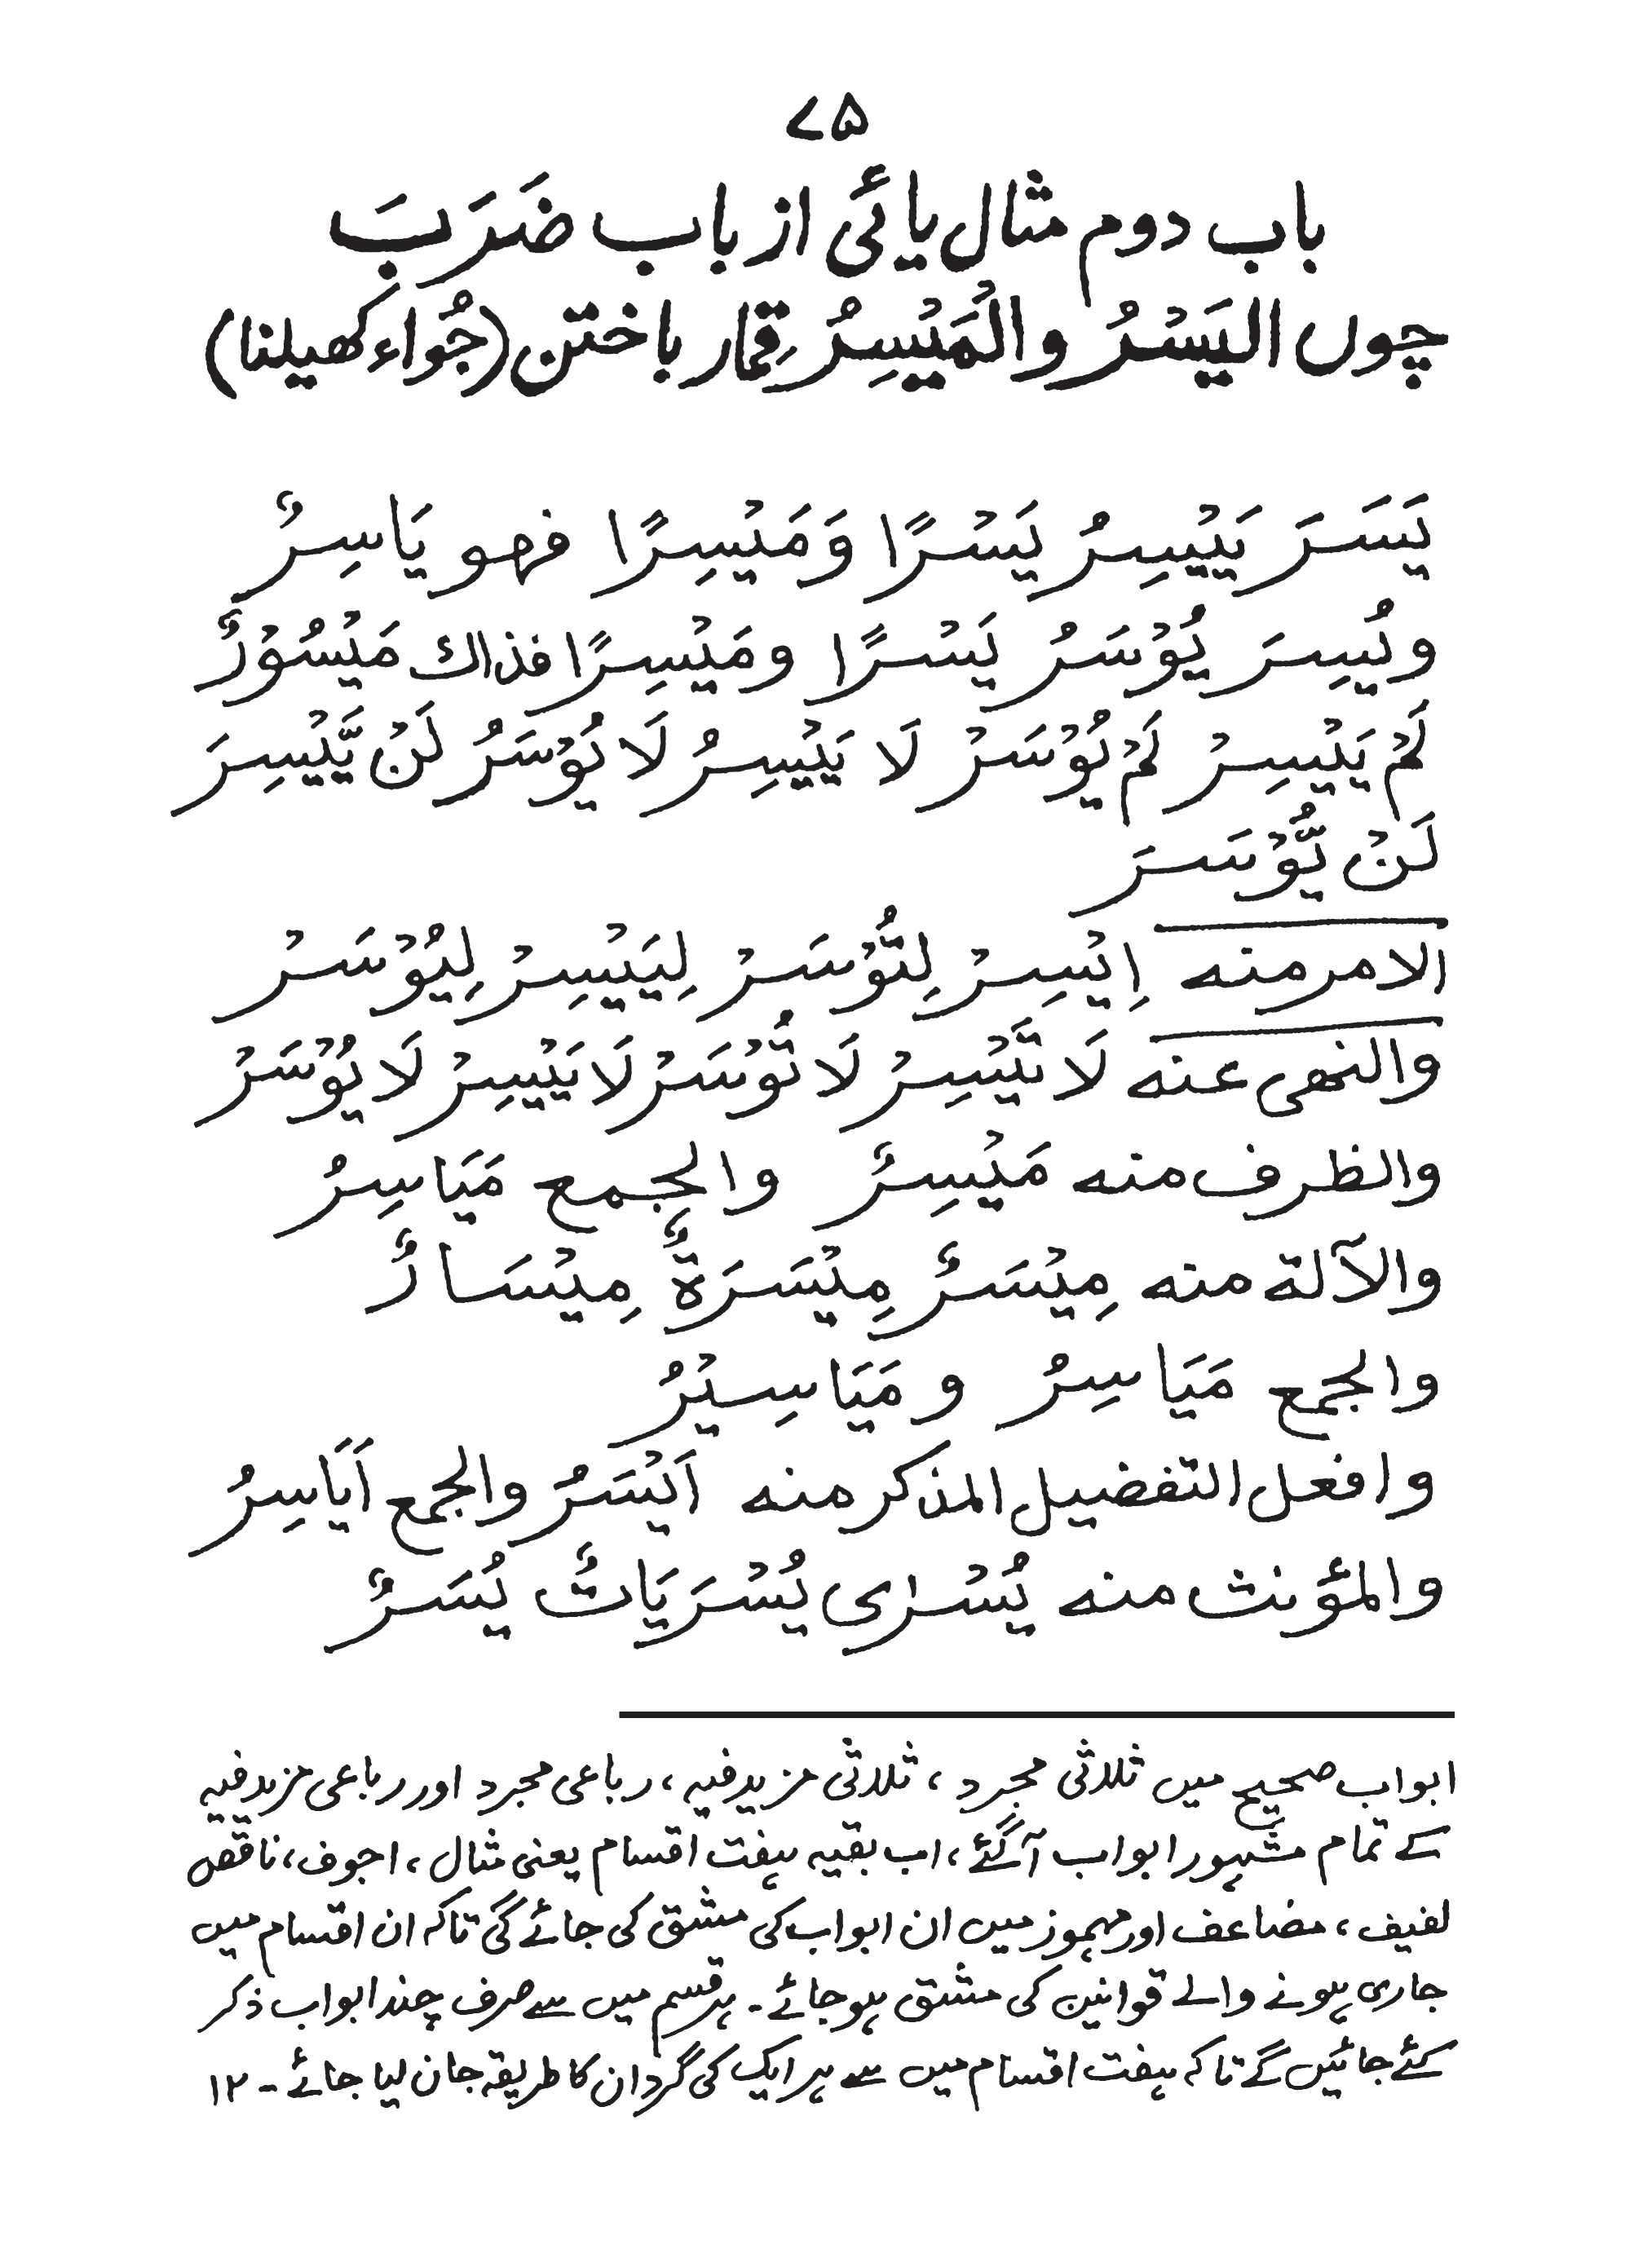 ۷۵
باب دوم مثال یائی از باب ضَرَبَ
چوں الیَسْرُ والْمَیْسِرُ قِمار باختن (جُواء کھیلنا)
یَسَرَ یَیْسِرُ یَسْرًا وَمَیْسِرًا فهو یَاسِرٌ
ویُسِرَ یُوْسَرُ یَسْرًا ومَیْسِرًا فذاك مَیْسُوْرٌ
لَمْ یَیْسِرْ لَمْ یُوْسَرْ لَا یَیْسِرُ لَا یُوْسَرُ لَنْ یَّیْسِرَ
لَنْ یُّوْسَرَ
الامر منه اِیْسِرْ لِتُوْسَرْ لِیَیْسِرْ لِیُوْسَرْ
والنهی عنه لَا تَیْسِرْ لَا تُوْسَرْ لَا یَیْسِرْ لَا یُوْسَرْ
والظرف منه مَیْسِرٌ والجمع مَیَاسِرُ
والآلة منه مِیْسَرٌ مِیْسَرَةٌ مِیْسَارٌ
والجمع مَیَاسِرُ و مَیَاسِیْرُ
وافعل التفضیل المذکر منه اَیْسَرُ والجمع اَیَاسِرُ
والمؤنث منه یُسْرٰی یُسْرَیَاتٌ یُسَرٌ
ابواب صحیح میں ثلاثی مجرد ، ثلاثی مزید فیہ ، رباعی مجرد اور رباعی مزید فیہ
کے تمام مشہور ابواب آگئے ، اب بقیہ ہفت اقسام یعنی مثال ، اجوف ، ناقص
لفیف ، مضاعف اور مہموز میں ان ابواب کی مشق کی جائے گی تاکہ ان اقسام میں
جاری ہونے والے قوانین کی مشق ہو جائے ۔ ہر قسم میں سے صرف چند ابواب ذکر
کئے جائیں گے تاکہ ہفت اقسام میں سے ہر ایک کی گردان کا طریقہ جان لیا جائے ۔ ۱۲